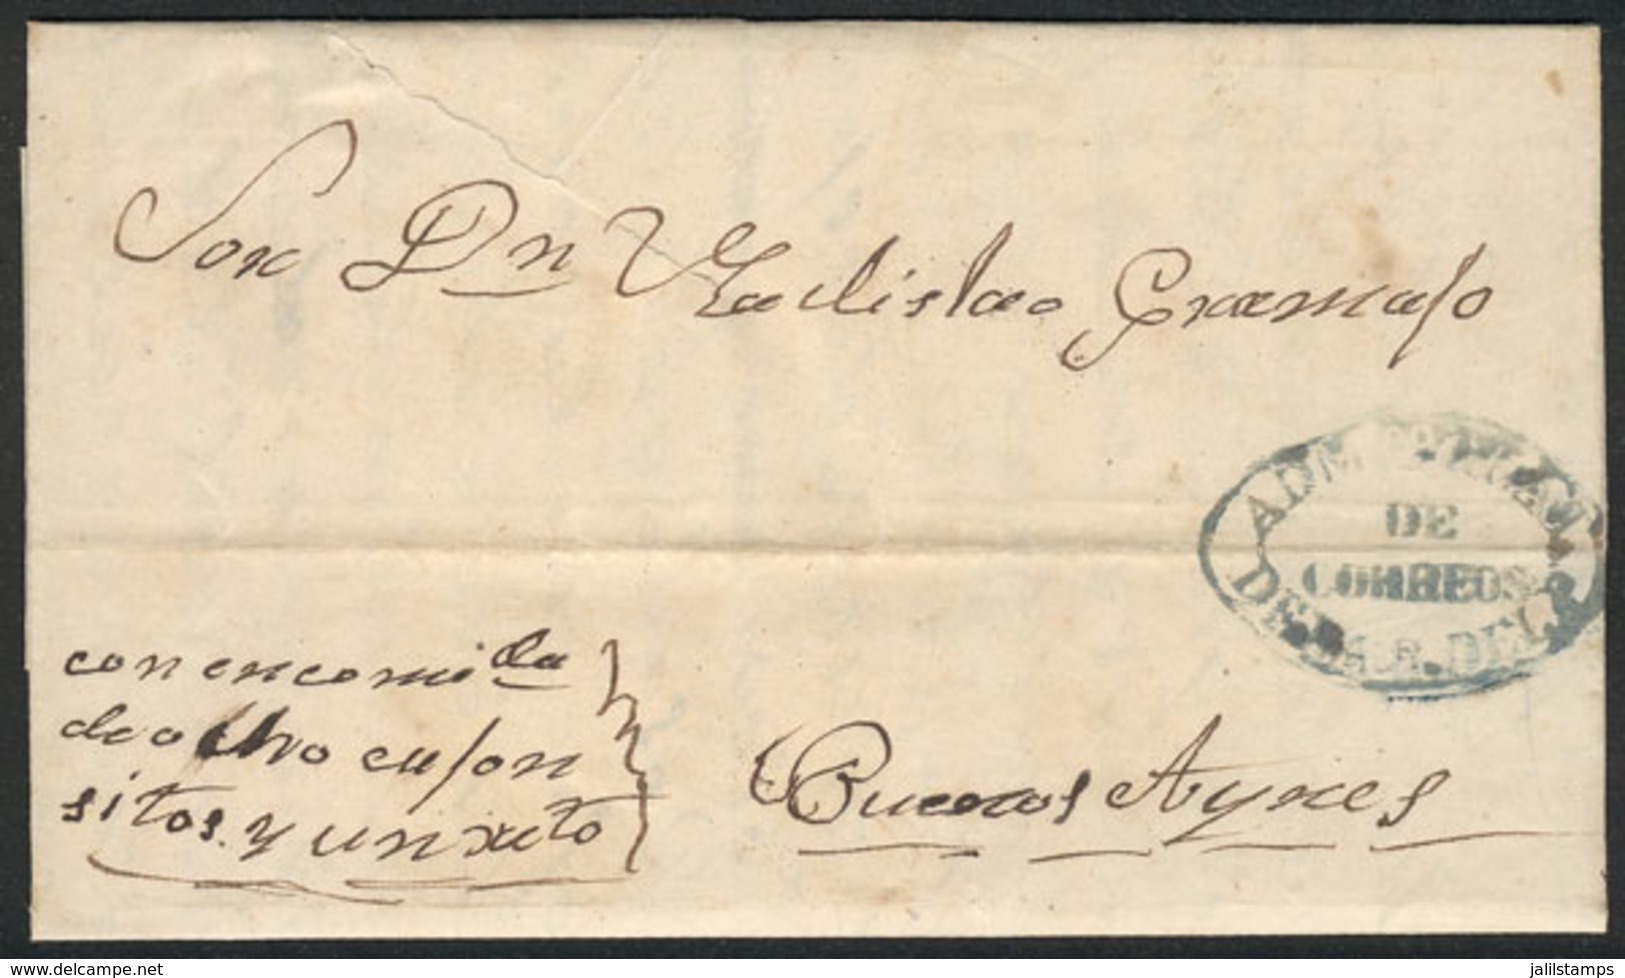 Sor Dn Vladislao Gramajo
ADMINISTRAC.
DE
CORREOS
DE
con encomi da
de ocho cajon
sitos. y un
Buenos Ayres
www.delcampe.net
jalilstamps